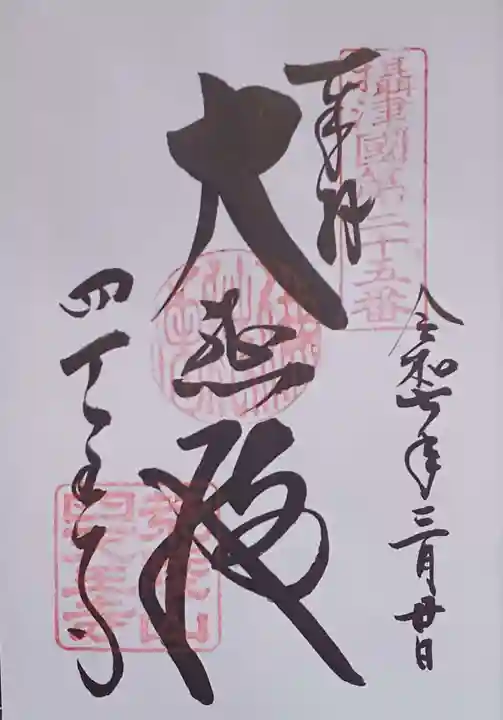 攝津國第二十五番
奉拝
令和七年三月廿日
大悲殿
四天王寺